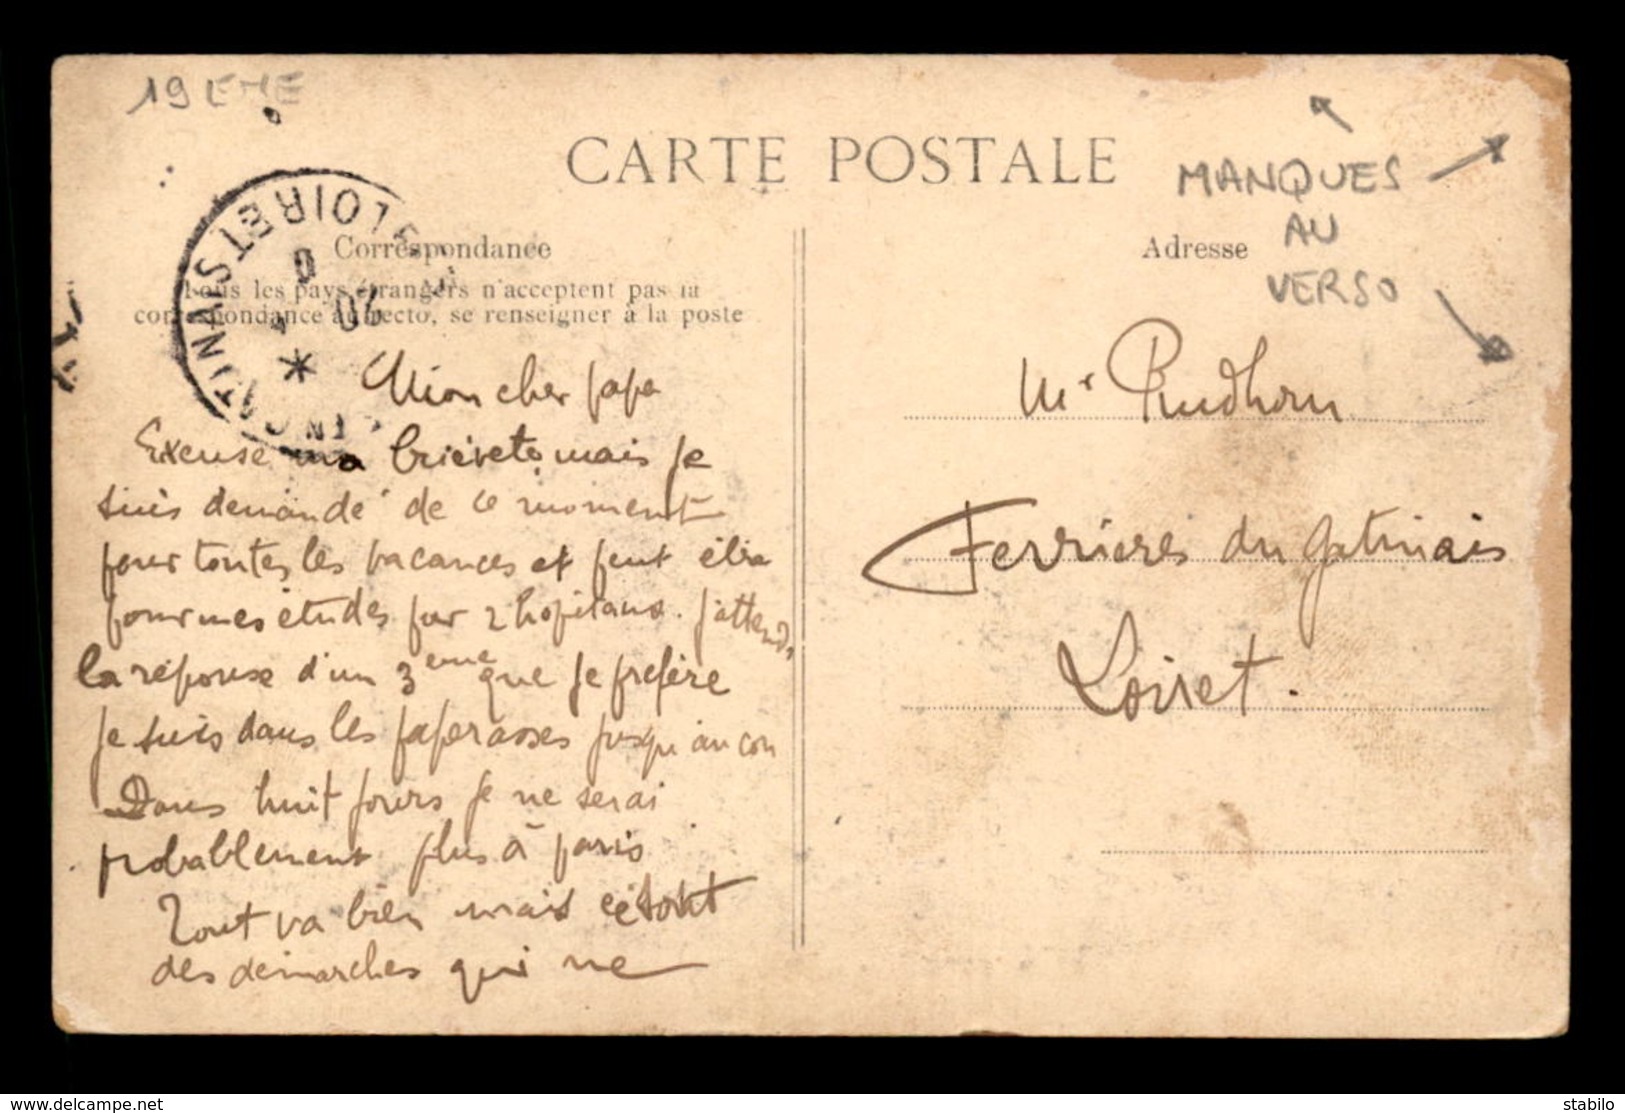 19 EME
CARTE POSTALE
MANQUES
AU
VERSO
LOIRET
Correspondance
Adresse
Tous les pays étrangers n'acceptent pas la
correspondance au recto, se renseigner à la poste
Mon cher papa
Excuse ma brièveté mais je
suis demandé de ce moment
pour toutes les vacances et peut être
pour mes études par 2 hopitaux. J'attends
la réponse d'un 3eme que je préfère
je suis dans les paperasses jusqu'au cou
Dans huit jours je ne serai
probablement plus à Paris
Tout va bien mais ce sont
des démarches qui ne
Mr Prudhom
Ferrières du Gatinais
Loiret.
delcampe.net
stabilo